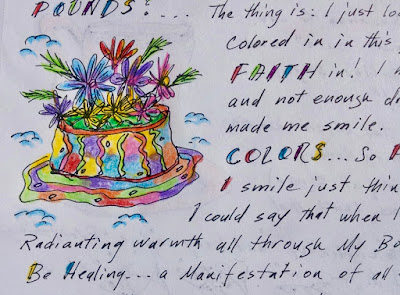 POUNDS!.... The thing is: I just
Colored in in this
FAITH in! I
and not enough
made me smile.
COLORS... So
I smile just
I could say that when I
Radianting warmth all through My
Be Healing... a Manifestation of all